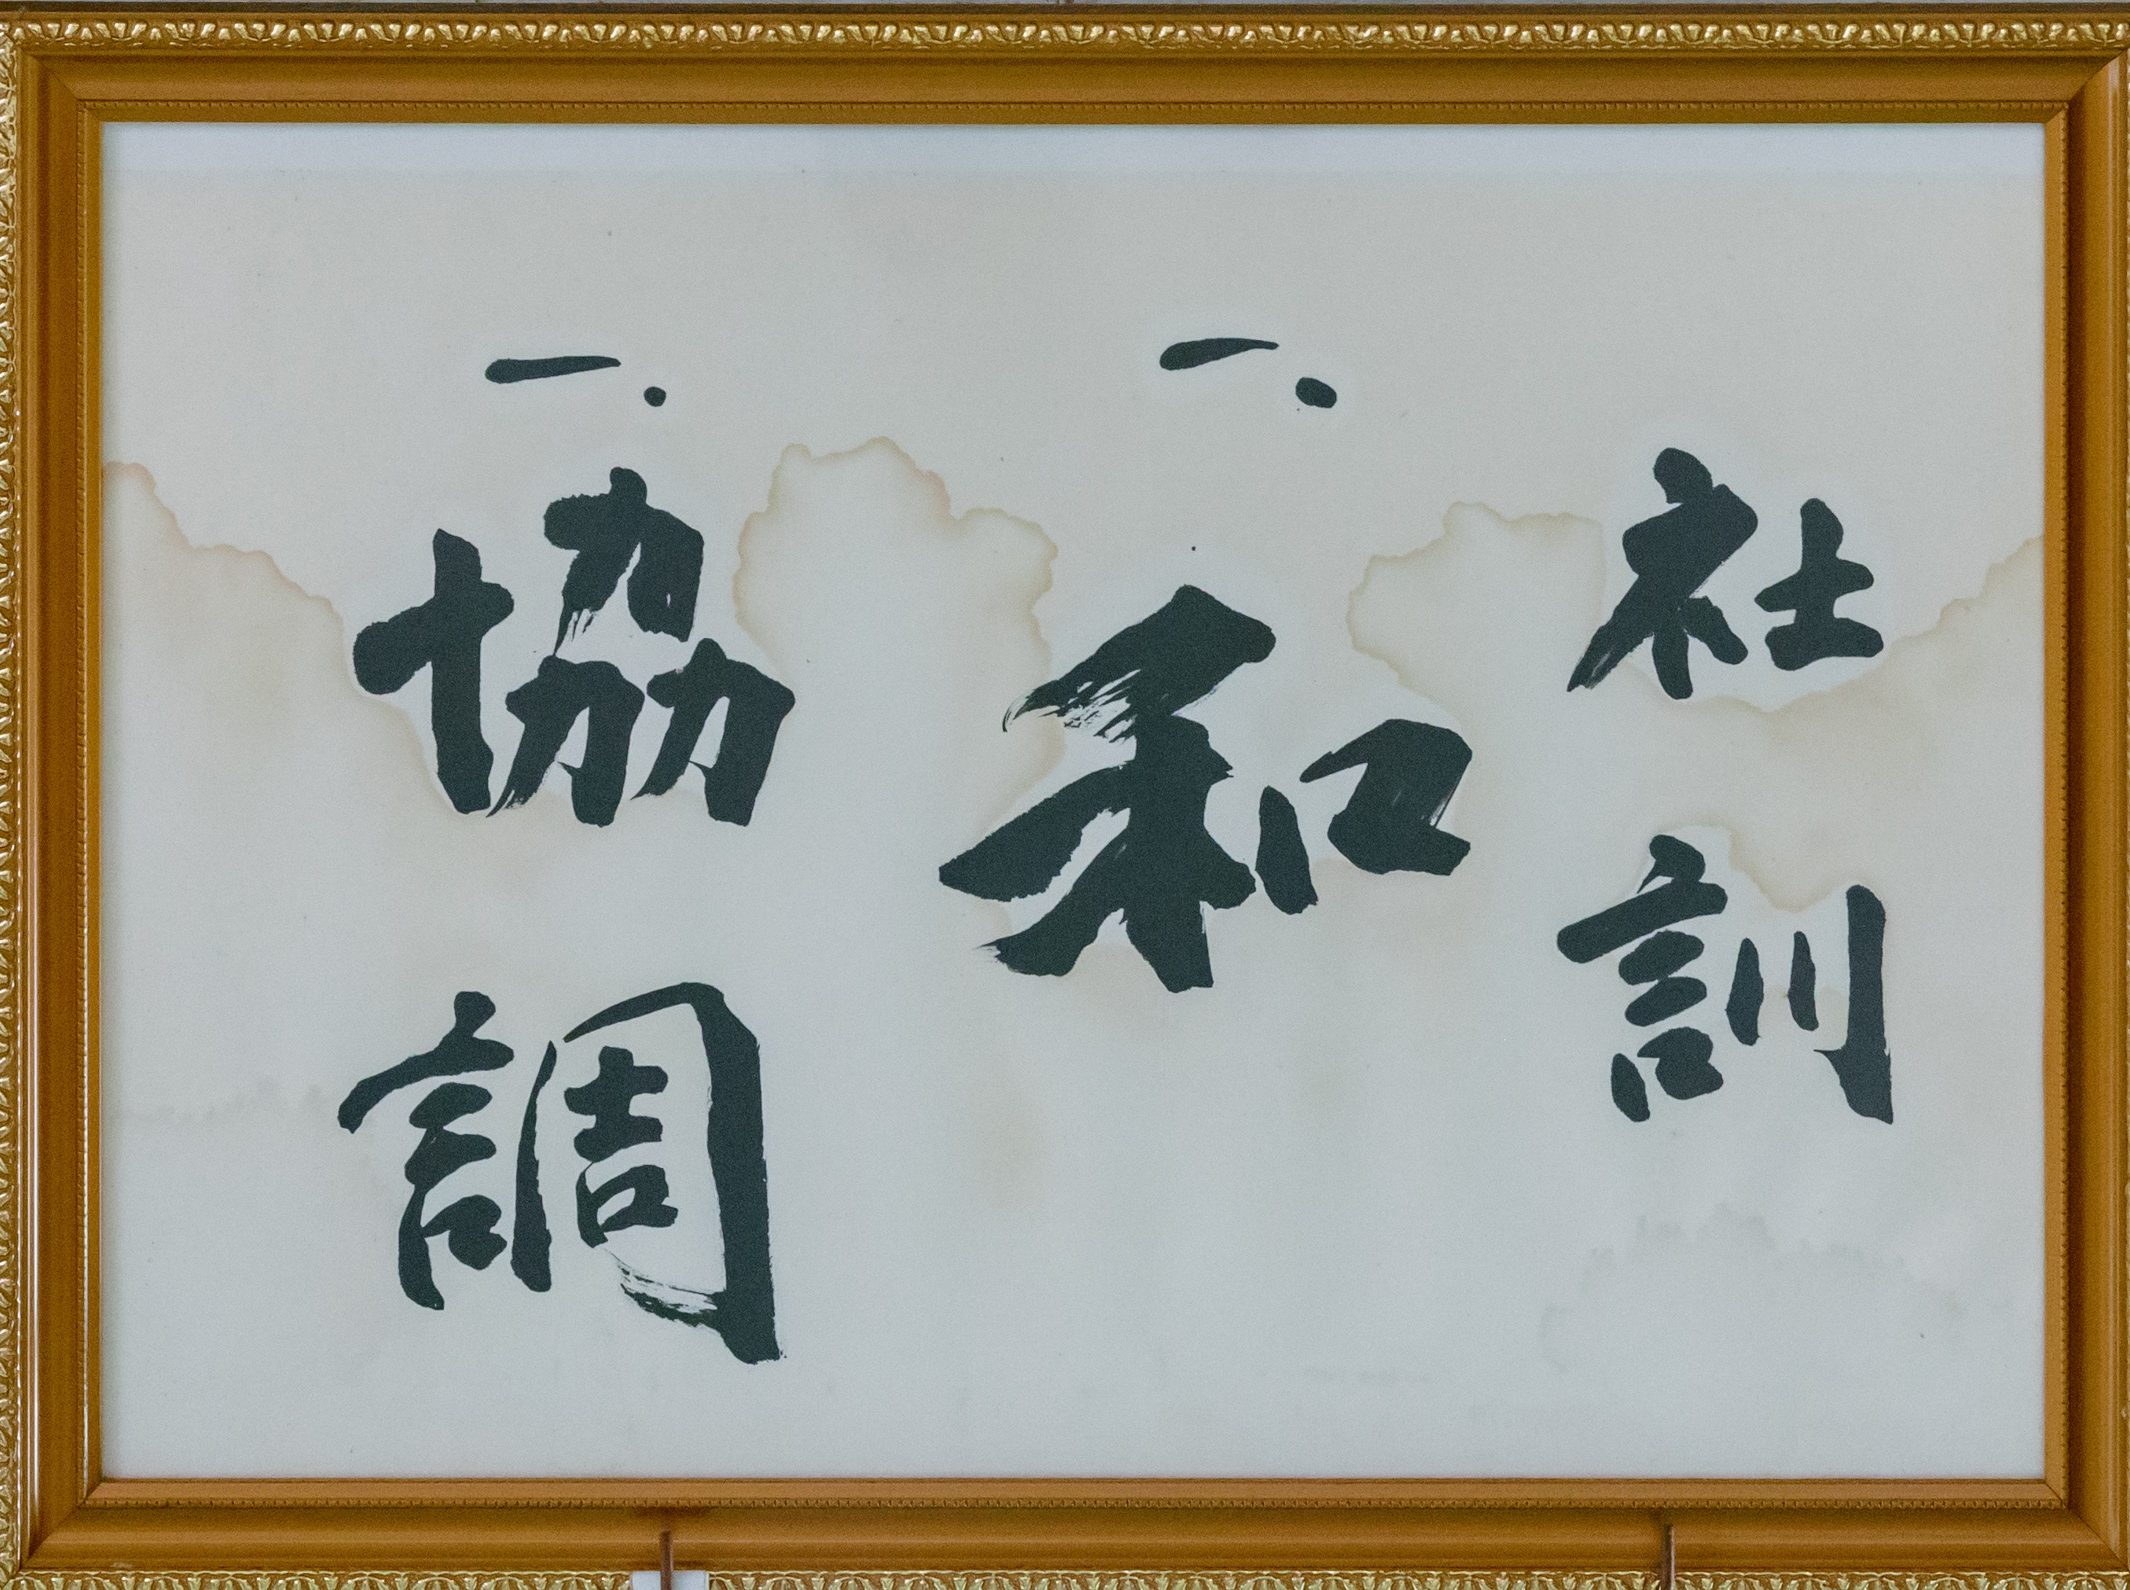 社訓
一、和
一、協調